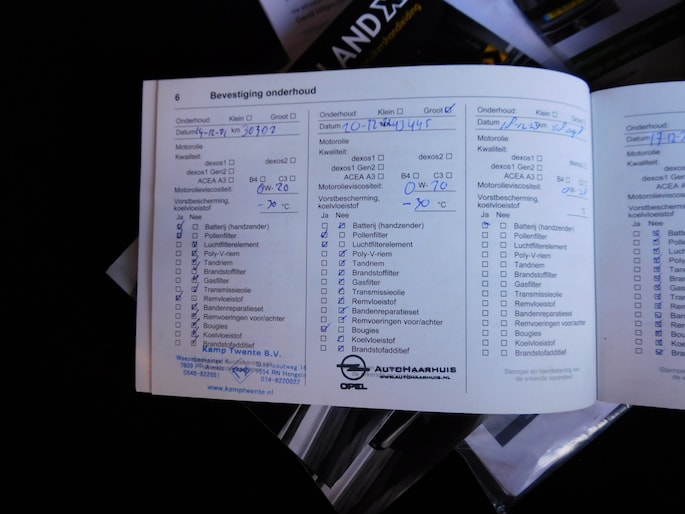 LAND X
6 Bevestiging onderhoud
Onderhoud: Klein Groot
Datum 14-12-21 km 30302
Motorolie
Kwaliteit:
dexos1 dexos2
dexos1 Gen2
ACEA A3 B4 C3
Motorolieviscositeit: 0W-20
Vorstbescherming,
koelvloeistof -30 °C
Ja Nee
Batterij (handzender)
Pollenfilter
Luchtfilterelement
Poly-V-riem
Tandriem
Brandstoffilter
Gasfilter
Transmissieolie
Remvloeistof
Bandenreparatieset
Remvoeringen voor/achter
Bougies
Koelvloeistof
Brandstofadditief
Kamp Twente B.V.
074-8220022
www.kamptwente.nl
Onderhoud: Klein Groot
Datum 10-12-
Motorolie
Kwaliteit:
dexos1 dexos2
dexos1 Gen2
ACEA A3 B4 C3
Motorolieviscositeit: 0W-20
Vorstbescherming,
koelvloeistof -30 °C
Ja Nee
Batterij (handzender)
Pollenfilter
Luchtfilterelement
Poly-V-riem
Tandriem
Brandstoffilter
Gasfilter
Transmissieolie
Remvloeistof
Bandenreparatieset
Remvoeringen voor/achter
Bougies
Koelvloeistof
Brandstofadditief
AUTOHAARHUIS
WWW.AUTOHAARHUIS.NL
OPEL
Onderhoud: Klein Groot
Datum km
Motorolie
Kwaliteit:
dexos1 dexos2
dexos1 Gen2
ACEA A3 B4 C3
Motorolieviscositeit: 0W-20
Vorstbescherming,
koelvloeistof °C
Ja Nee
Batterij (handzender)
Pollenfilter
Luchtfilterelement
Poly-V-riem
Tandriem
Brandstoffilter
Gasfilter
Transmissieolie
Remvloeistof
Bandenreparatieset
Remvoeringen voor/achter
Bougies
Koelvloeistof
Brandstofadditief
Stempel en handtekening van
de erkende reparateur
Onderhoud:
Datum 17-12-2
Motorolie
Kwaliteit:
Motorolievis
Vorstbesche
koelvloeisto
Ja Nee
Batte
Polle
Luch
Poly
Tan
Bra
Gas
Tra
Re
Ba
Re
Bo
Ko
Br